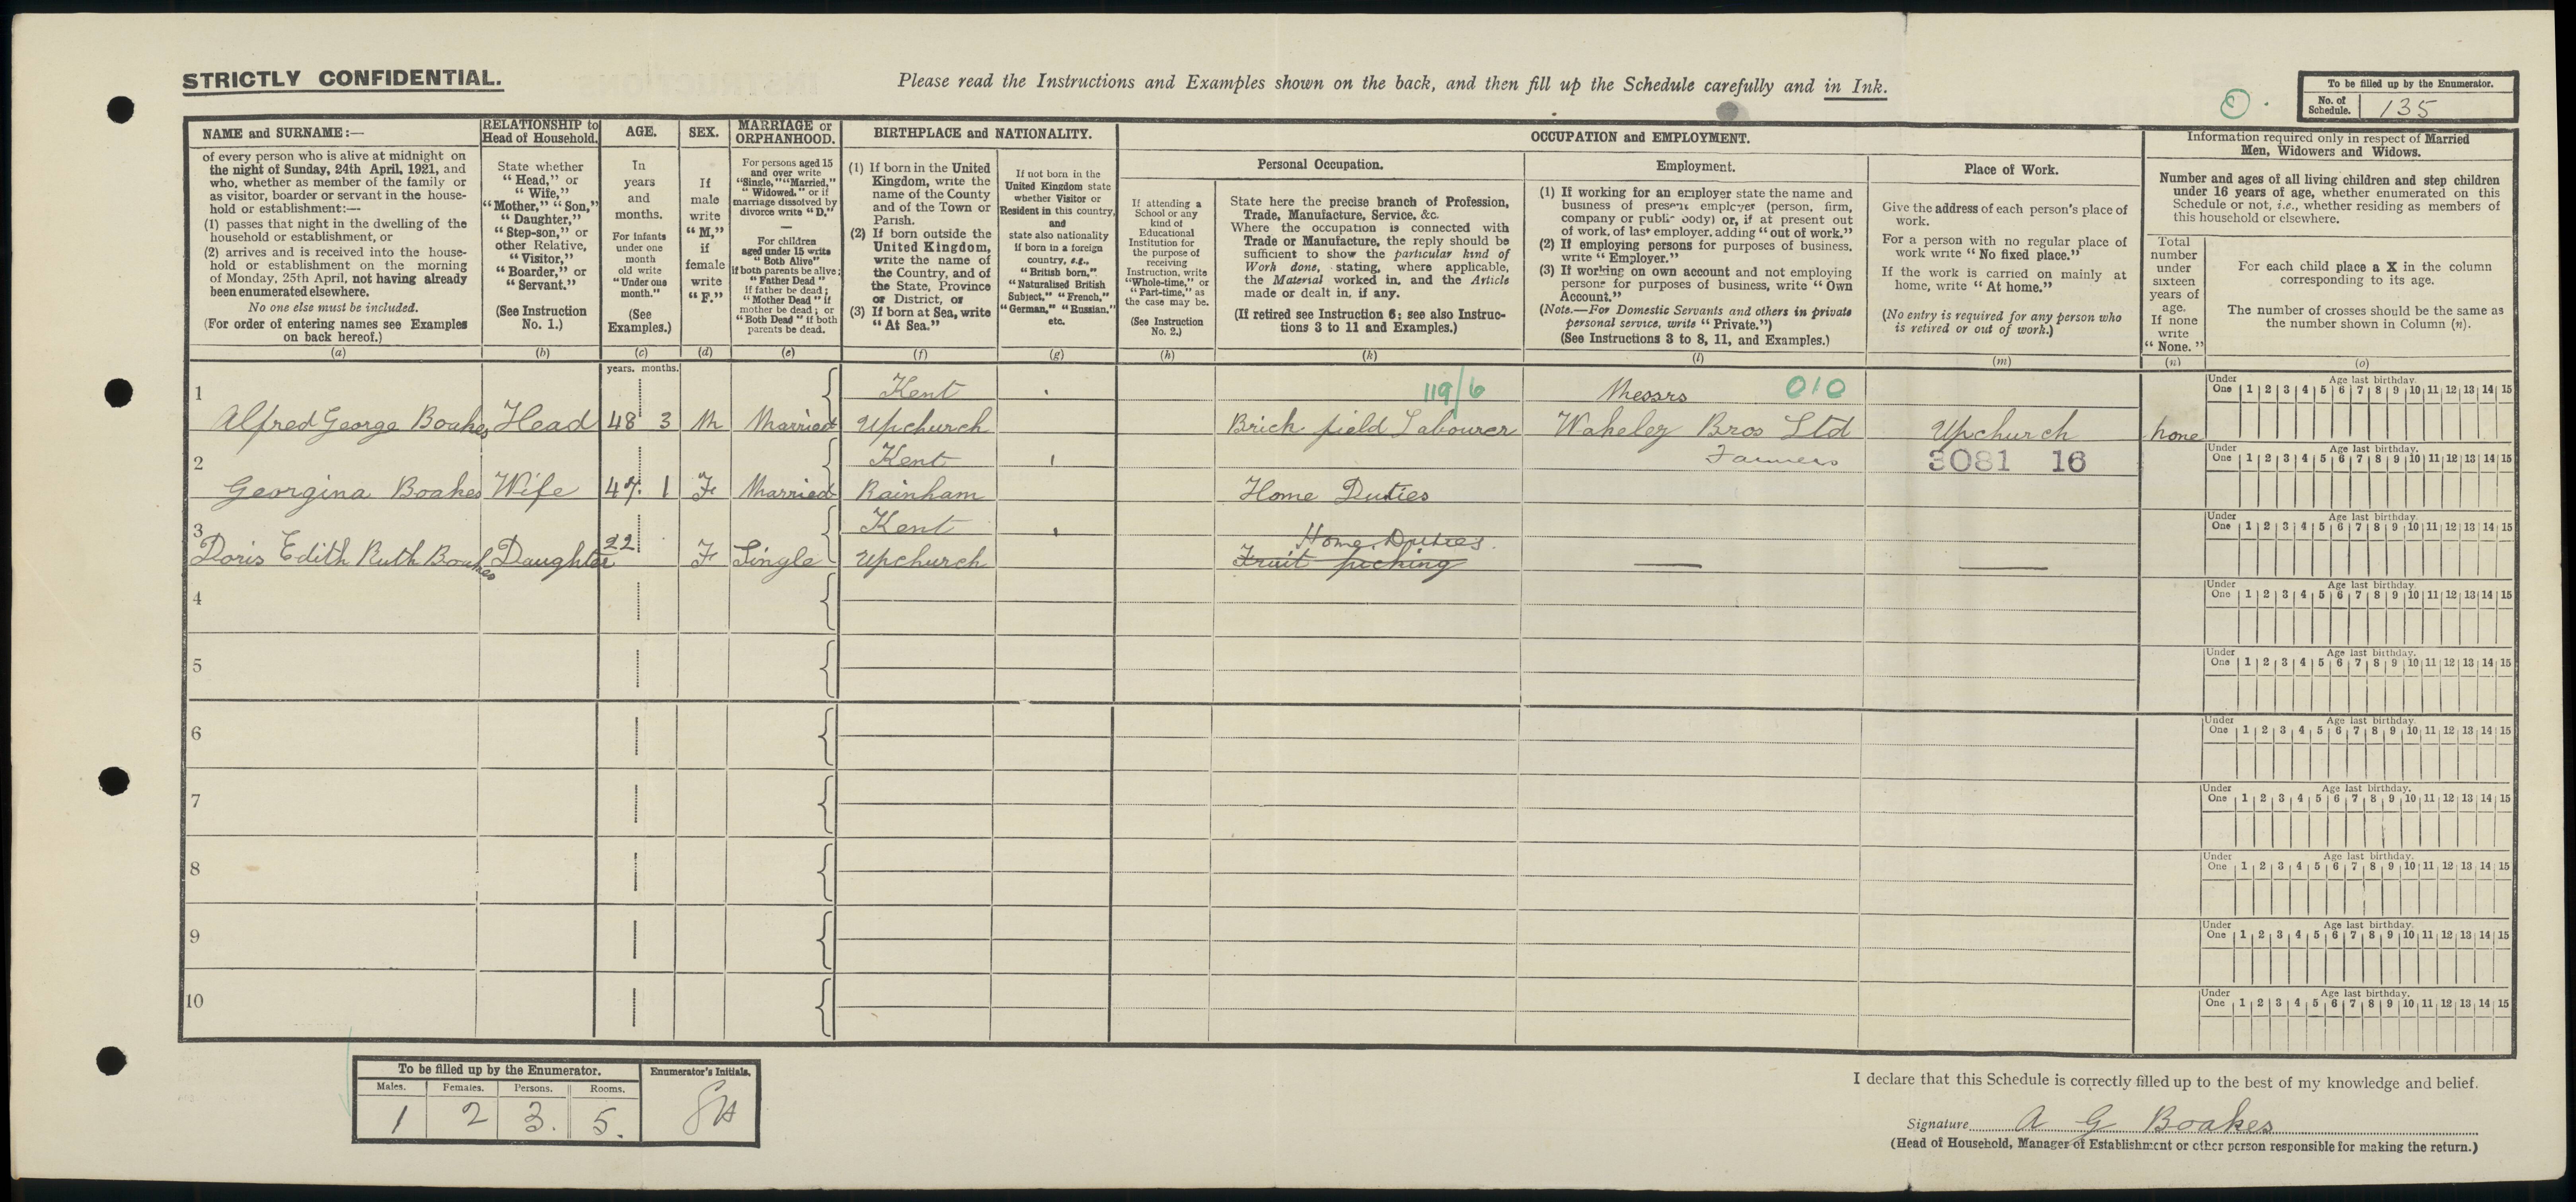 STRICTLY CONFIDENTIAL.
Please read the Instructions and Examples shown on the back, and then fill up the Schedule carefully and in Ink.
To be filled up by the Enumerator.
No. of Schedule. 135
NAME and SURNAME:—
of every person who is alive at midnight on
the night of Sunday, 24th April, 1921, and
who, whether as member of the family or
as visitor, boarder or servant in the house-
hold or establishment:—
(1) passes that night in the dwelling of the
household or establishment, or
(2) arrives and is received into the house-
hold or establishment on the morning
of Monday, 25th April, not having already
been enumerated elsewhere.
No one else must be included.
(For order of entering names see Examples
on back hereof.)
(a)
RELATIONSHIP to
Head of Household.
State whether
"Head," or
"Wife,"
"Mother," "Son,"
"Daughter,"
"Step-son," or
other Relative,
"Visitor,"
"Boarder," or
"Servant."
(See Instruction
No. 1.)
(b)
AGE.
In
years
and
months.
For infants
under one
month
old write
"Under one
month."
(See
Examples.)
(c)
SEX.
If
male
write
"M,"
if
female
write
"F."
(d)
MARRIAGE or
ORPHANHOOD.
For persons aged 15
and over write
"Single," "Married,"
"Widowed," or if
marriage dissolved by
divorce write "D."
For children
aged under 15 write
"Both Alive"
if both parents be alive;
"Father Dead"
if father be dead;
"Mother Dead" if
mother be dead; or
"Both Dead" if both
parents be dead.
(e)
BIRTHPLACE and NATIONALITY.
(1) If born in the United
Kingdom, write the
name of the County
and of the Town or
Parish.
(2) If born outside the
United Kingdom,
write the name of
the Country, and of
the State, Province
or District, or
(3) If born at Sea, write
"At Sea."
(f)
If not born in the
United Kingdom state
whether Visitor or
Resident in this country,
and
state also nationality
if born in a foreign
country, e.g.,
"British born,"
"Naturalised British
Subject," "French,"
"German," "Russian,"
etc.
(g)
OCCUPATION and EMPLOYMENT.
Personal Occupation.
If attending a
School or any
kind of
Educational
Institution for
the purpose of
receiving
Instruction, write
"Whole-time," or
"Part-time," as
the case may be.
(See Instruction
No. 2.)
(h)
State here the precise branch of Profession,
Trade, Manufacture, Service, &c.
Where the occupation is connected with
Trade or Manufacture, the reply should be
sufficient to show the particular kind of
Work done, stating, where applicable,
the Material worked in, and the Article
made or dealt in, if any.
(If retired see Instruction 6; see also Instruc-
tions 3 to 11 and Examples.)
(k)
Employment.
(1) If working for an employer state the name and
business of present employer (person, firm,
company or public body) or, if at present out
of work, of last employer, adding "out of work."
(2) If employing persons for purposes of business,
write "Employer."
(3) If working on own account and not employing
persons for purposes of business, write "Own
Account."
(Note.—For Domestic Servants and others in private
personal service, write "Private.")
(See Instructions 3 to 8, 11, and Examples.)
(l)
Place of Work.
Give the address of each person's place of
work.
For a person with no regular place of
work write "No fixed place."
If the work is carried on mainly at
home, write "At home."
(No entry is required for any person who
is retired or out of work.)
(m)
Information required only in respect of Married
Men, Widowers and Widows.
Number and ages of all living children and step children
under 16 years of age, whether enumerated on this
Schedule or not, i.e., whether residing as members of
this household or elsewhere.
Total
number
under
sixteen
years of
age.
If none
write
"None."
(n)
For each child place a X in the column
corresponding to its age.
The number of crosses should be the same as
the number shown in Column (n).
(o)
years. months.
Under One Age last birthday. 1 2 3 4 5 6 7 8 9 10 11 12 13 14 15
1 Kent 119/6 Messrs 010
Alfred George Boakes Head 48 3 M Married Upchurch Brick field Labourer Wakeley Bros Ltd Upchurch none
Under One Age last birthday. 1 2 3 4 5 6 7 8 9 10 11 12 13 14 15
2 Kent Farmers 3081 16
Georgina Boakes Wife 47 1 F Married Rainham Home Duties
Under One Age last birthday. 1 2 3 4 5 6 7 8 9 10 11 12 13 14 15
3 Kent Home Duties.
Doris Edith Ruth Boakes Daughter 22 F Single Upchurch Fruit picking
4 Under One Age last birthday. 1 2 3 4 5 6 7 8 9 10 11 12 13 14 15
5 Under One Age last birthday. 1 2 3 4 5 6 7 8 9 10 11 12 13 14 15
6 Under One Age last birthday. 1 2 3 4 5 6 7 8 9 10 11 12 13 14 15
7 Under One Age last birthday. 1 2 3 4 5 6 7 8 9 10 11 12 13 14 15
8 Under One Age last birthday. 1 2 3 4 5 6 7 8 9 10 11 12 13 14 15
9 Under One Age last birthday. 1 2 3 4 5 6 7 8 9 10 11 12 13 14 15
10 Under One Age last birthday. 1 2 3 4 5 6 7 8 9 10 11 12 13 14 15
To be filled up by the Enumerator. Enumerator's Initials.
Males. Females. Persons. Rooms.
1 2 3. 5.
I declare that this Schedule is correctly filled up to the best of my knowledge and belief.
Signature A G Boakes
(Head of Household, Manager of Establishment or other person responsible for making the return.)